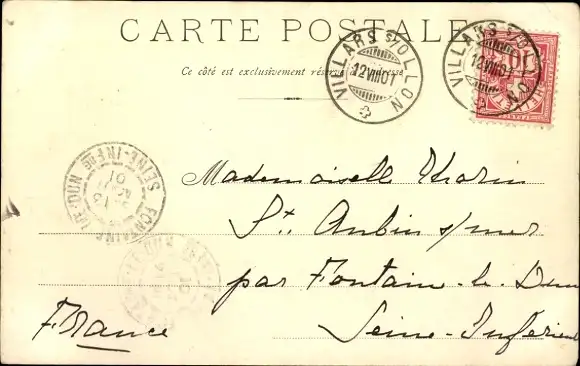 CARTE POSTALE
Ce côté est exclusivement réservé adresse
VILLARS S/OLLON
12 VIII 01
VILLARS S/OLLON
12 VIII 01
10
FONTAINE LE DUN
SEINE-INFRE
13
01
Mademoiselle Thorin
St. Aubin s/mer
par Fontain-le-Dun
Seine-Inférieu
France